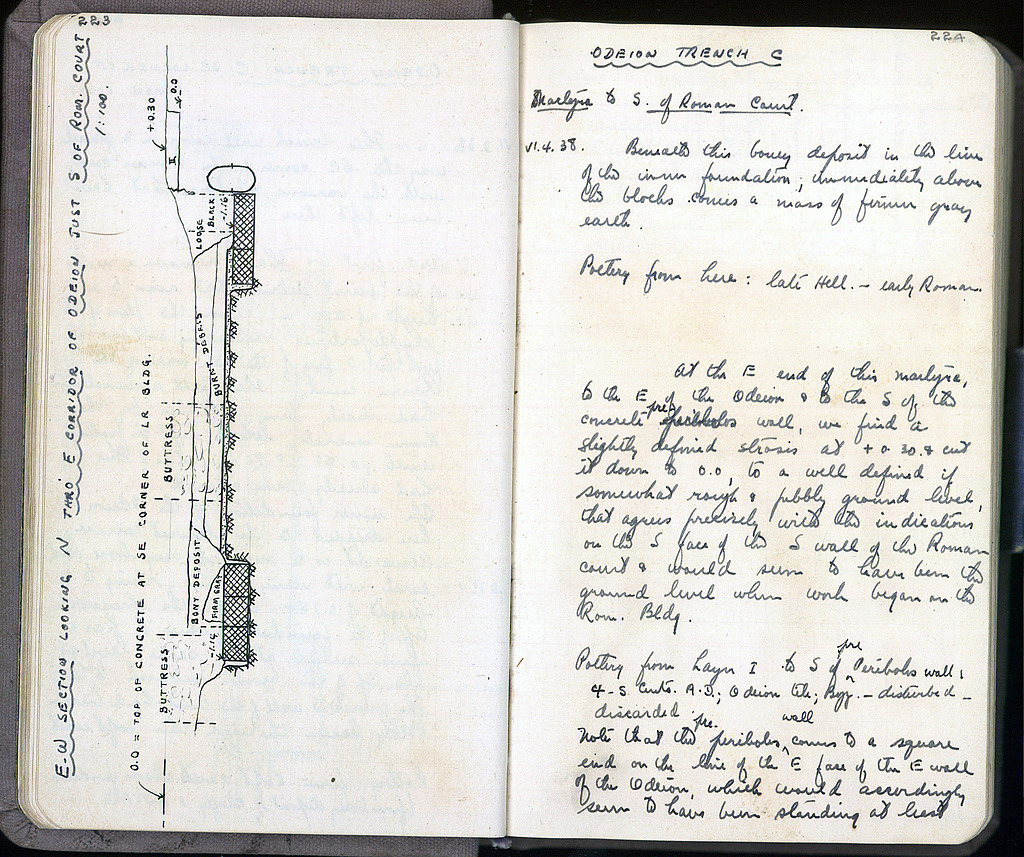 223
E-W SECTION LOOKING N THRO' E CORRIDOR OF ODEION JUST S OF ROM. COURT
1:100.
0.0 = TOP OF CONCRETE AT SE CORNER OF LR BLDG.
+0.30
0.0
II
LOOSE
BLACK
-1.16
BURNT DEBRIS
BUTTRESS
BONY DEPOSIT
FIRM GRAY
-1.14
BUTTRESS
224
ODEION TRENCH C
Martyra to S. of Roman Court.
VI.4.38. Beneath this boney deposit in the line
of the inner foundation; immediately above
the blocks comes a mass of firmer gray
earth.
Pottery from here: late Hell. - early Roman.
At the E end of this martyra,
to the E of the Odeion & to the S of the
pre
concrete periboloos wall, we find a
slightly defined strosis at +0.30. & cut
it down to 0.0, to a well defined if
somewhat rough & pebbly ground level
that agrees precisely with the indications
on the S face of the S wall of the Roman
court & would seem to have been the
ground level when work began on the
Rom. Bldg.
pre
Pottery from Layer I to S of Peribolos wall:
4-5 Cents. A.D.; Odeion tile; Byz. - disturbed -
discarded
pre. wall
Note that the peribolos, comes to a square
end on the line of the E face of the E wall
of the Odeion, which would accordingly
seem to have been standing at least